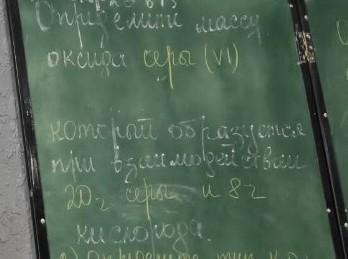 Определить массу
оксида серы (VI)
который образуется
при взаимодействии
20 г серы и 8 г
кислорода.